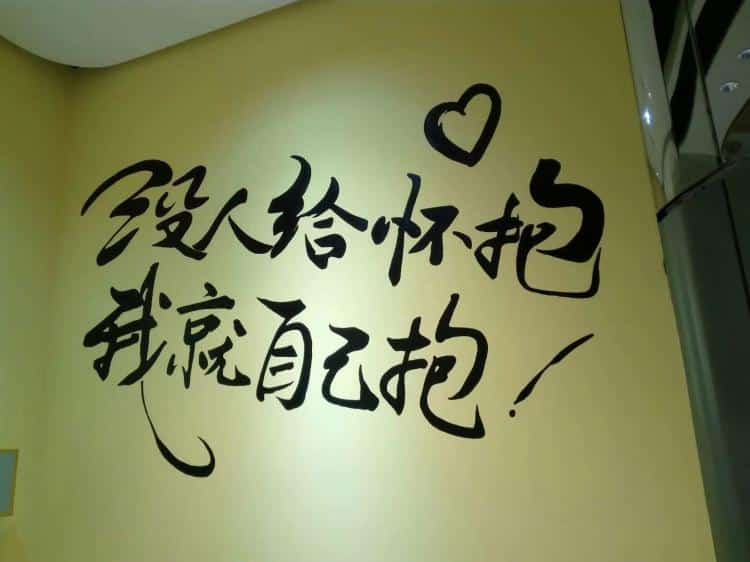 没人给怀抱
我就自己抱!